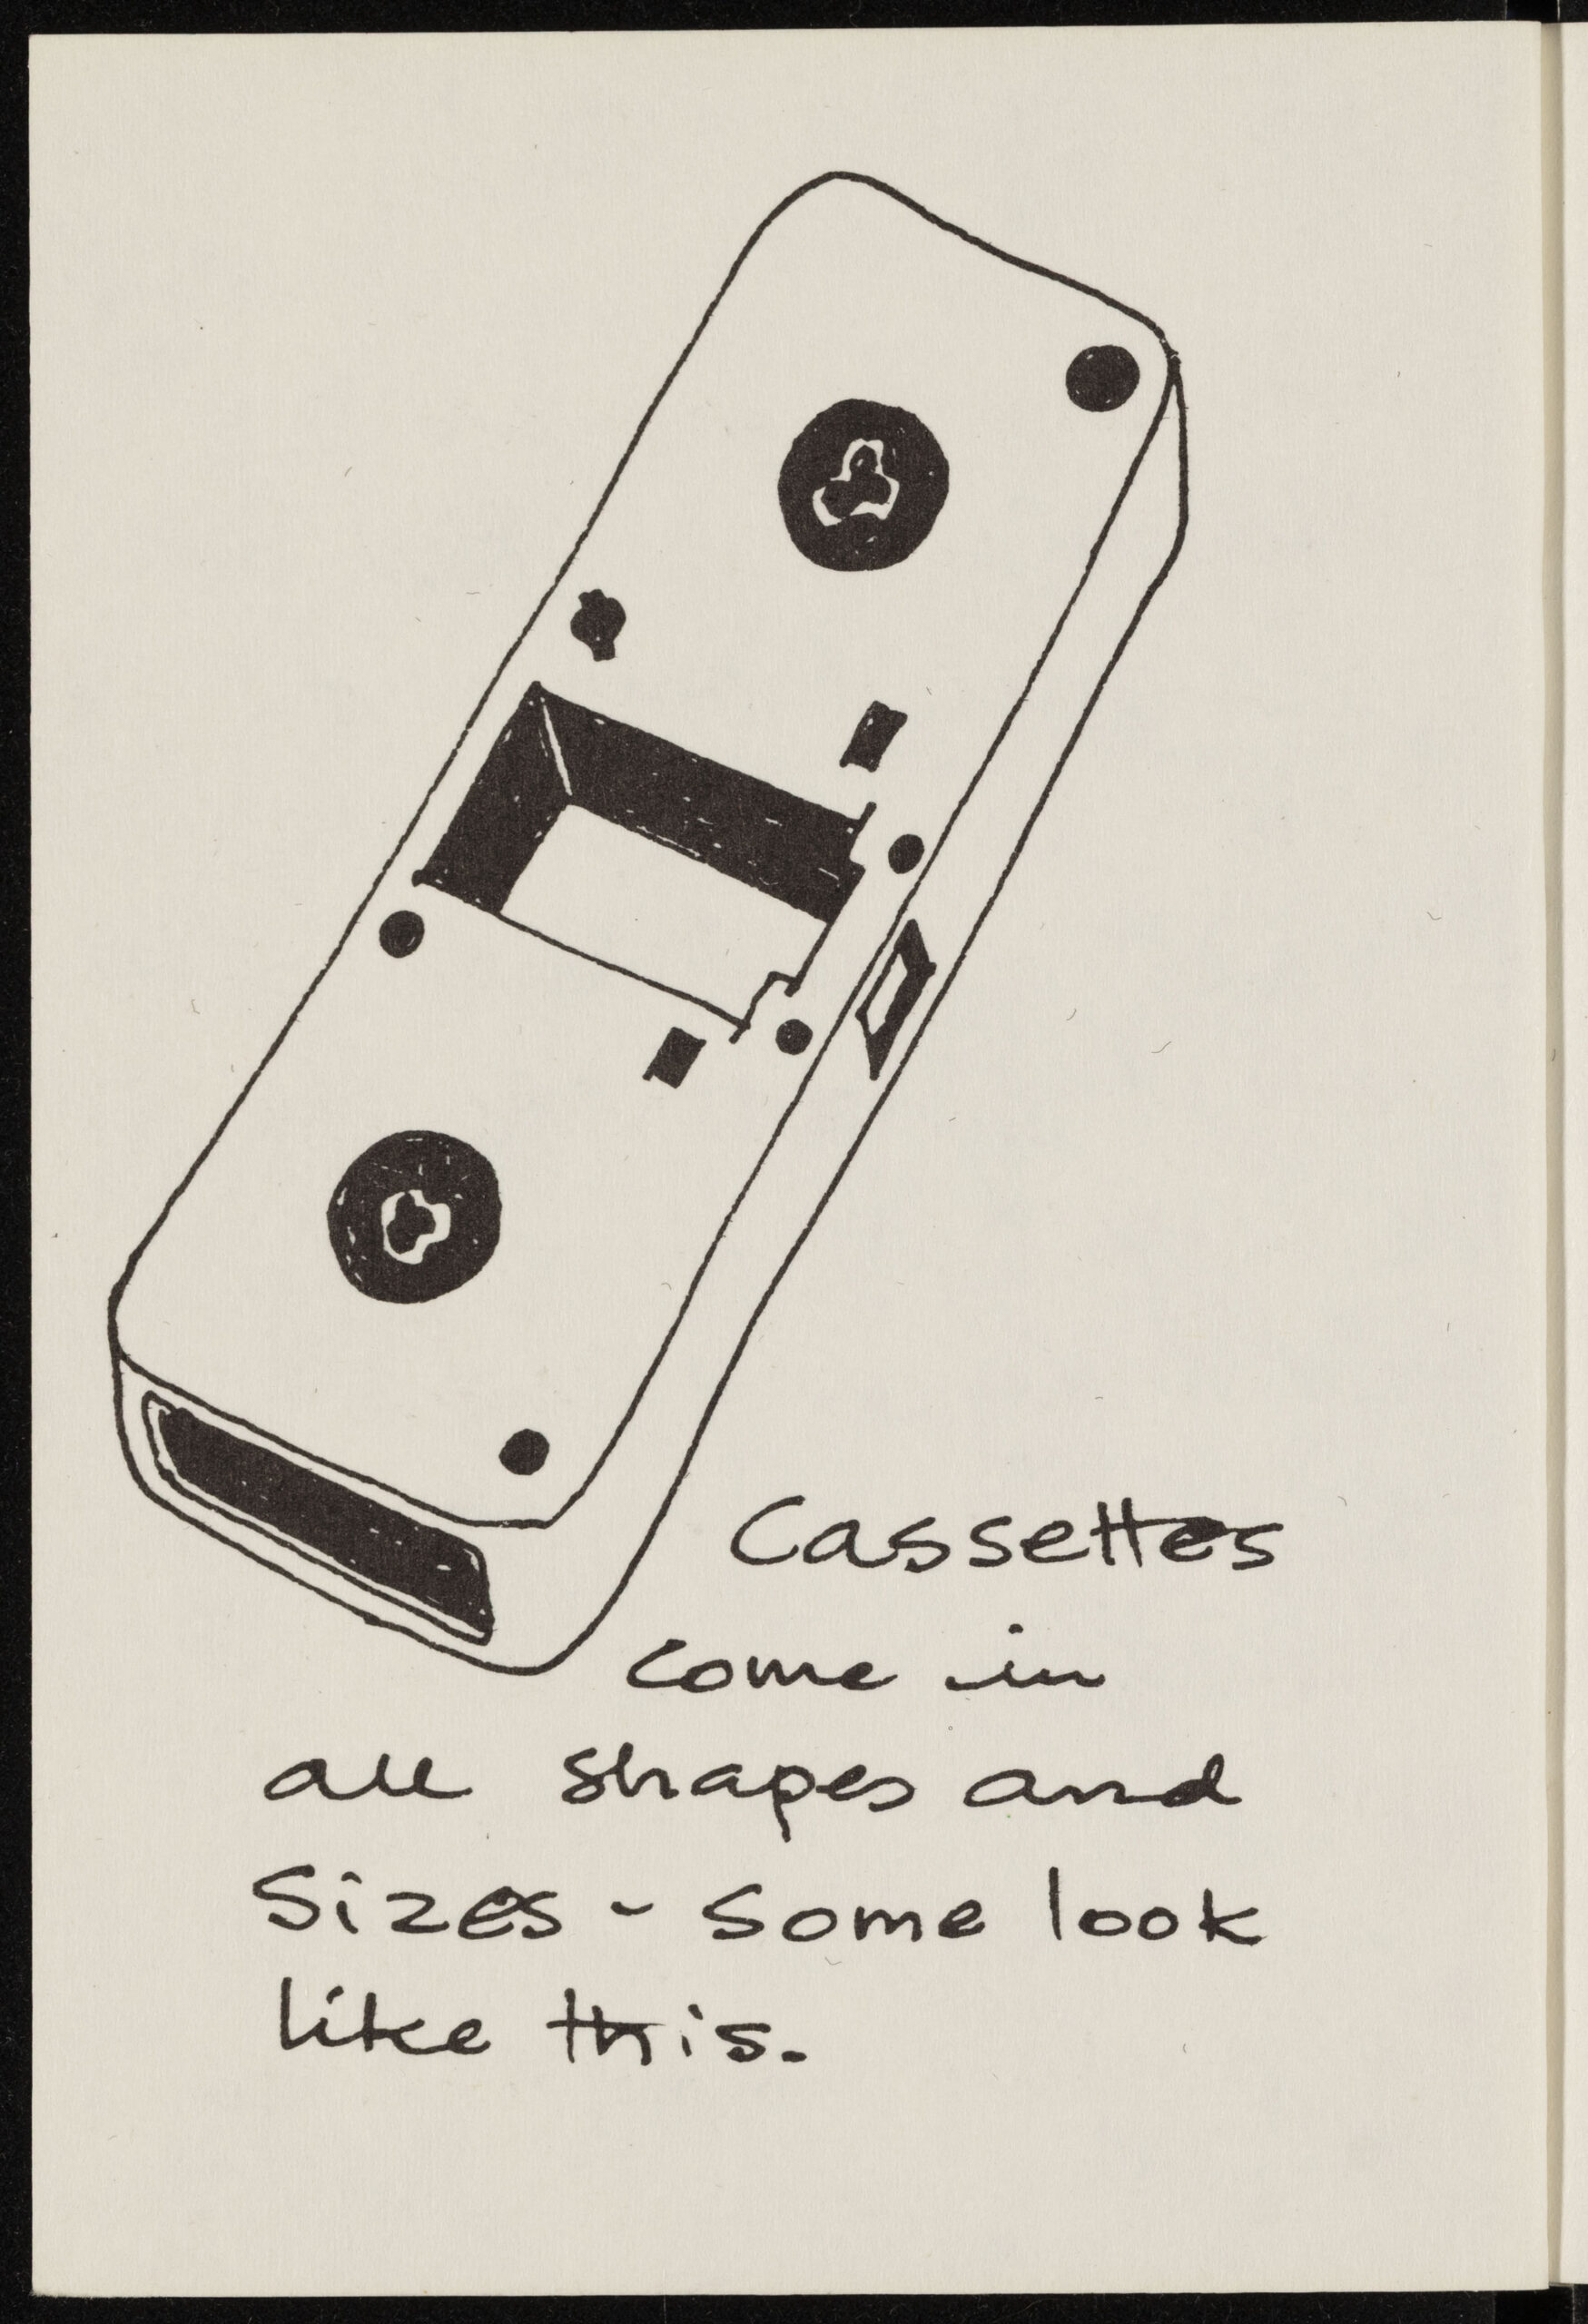 Cassettes
come in
all shapes and
Sizes - Some look
like this.